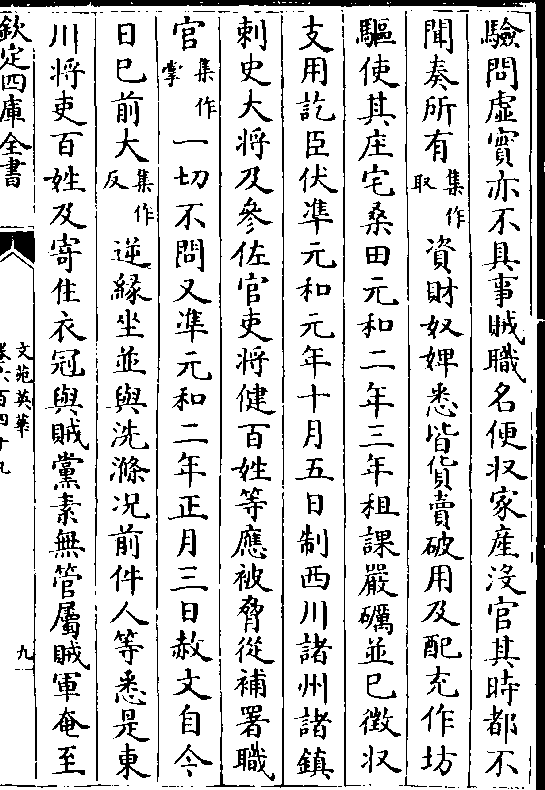 驗問虛實亦不具事賊職名便收家産沒官其時都不
聞奏所有集作取資財奴婢悉皆貨賣破用及配充作坊
驅使其庄宅桑田元和二年三年租課嚴礪並已徵収
支用訖臣伏凖元和元年十月五日制西川諸州諸鎮
刺史大將及參佐官吏將健百姓等應被脅從補署職
官集作掌一切不問又凖元和二年正月三日赦文自今
日已前大集作反逆緣坐並與洗滌况前件人等悉是東
川將吏百姓及寄住衣冠與賊黨素無管屬賊軍奄至
欽定四庫全書
文苑英華
卷六百四十九
九